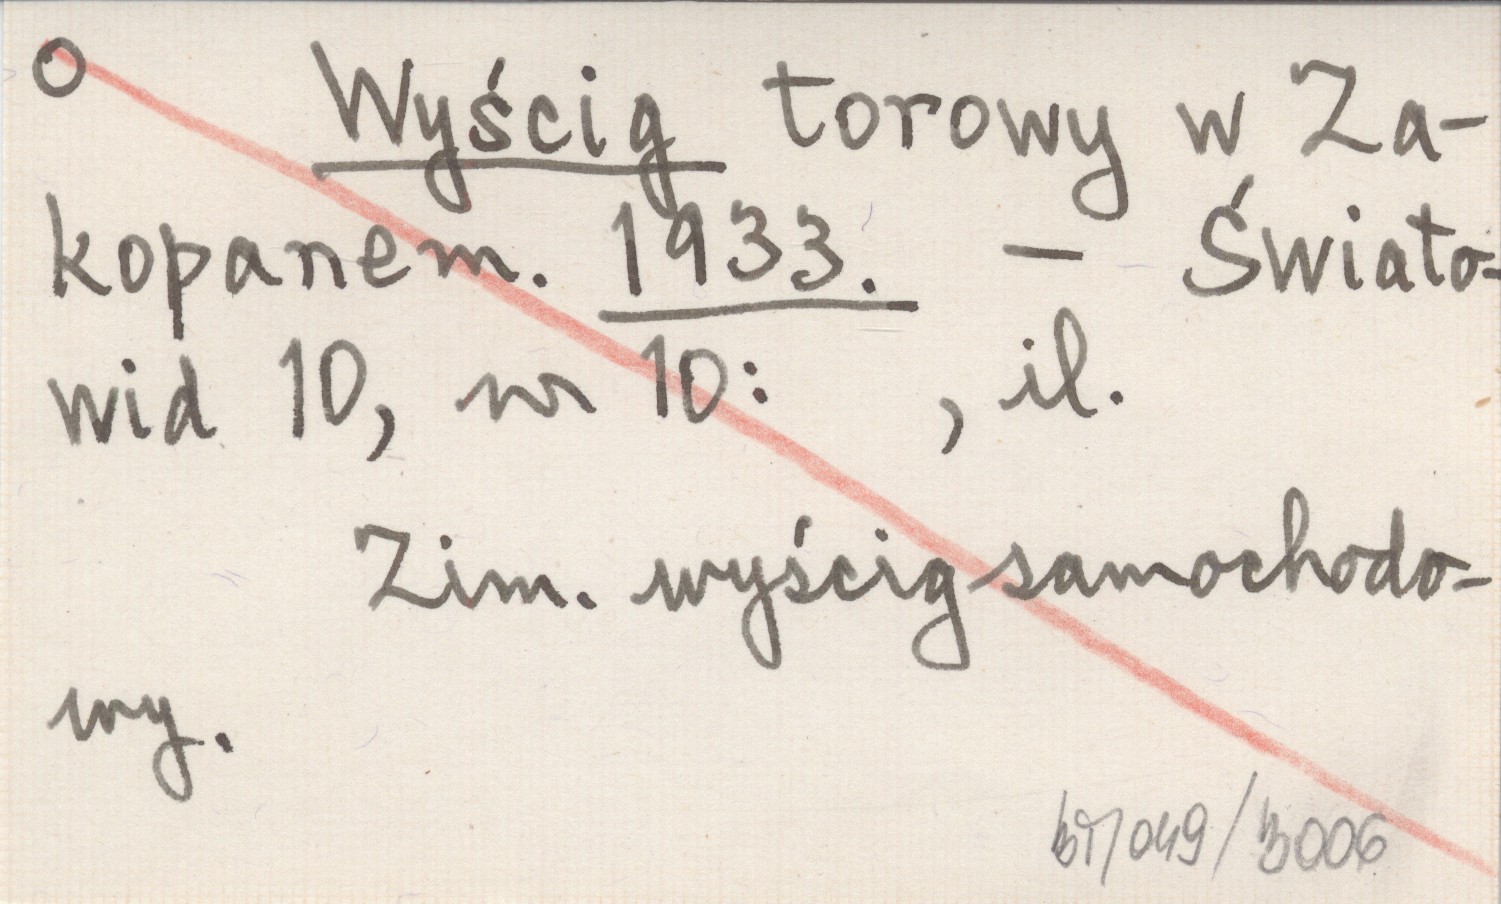 O Wyścig torowy w Za-
kopanem. 1933. — Świato-
wid 10, nr 10: , il.
Zim. wyścig samochodo-
wy.